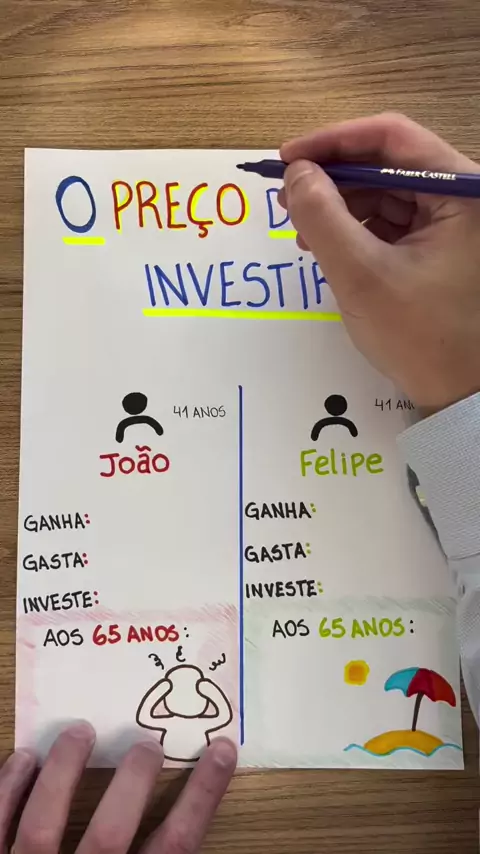 FABER-CASTELL
O PREÇO
INVESTIR
41 ANOS
João
GANHA:
GASTA:
INVESTE:
AOS 65 ANOS:
41
Felipe
GANHA:
GASTA:
INVESTE:
AOS 65 ANOS: